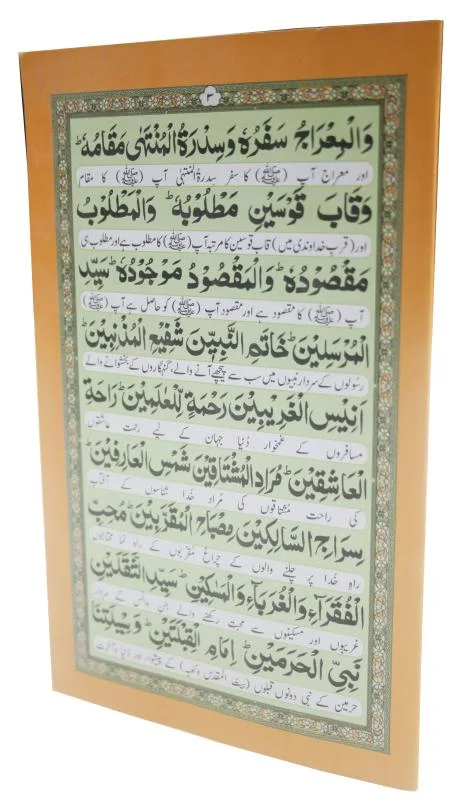 ۳
وَالْمِعْرَاجُ سَفَرُهٗ وَسِدْرَةُ الْمُنْتَهٰى مَقَامُهٗ ؕ
اور معراج آپ (ﷺ) کا سفر سدرۃ المنتہیٰ آپ (ﷺ) کا مقام
وَقَابَ قَوْسَيْنِ مَطْلُوْبُهٗ ؕ وَالْمَطْلُوْبُ
اور (قرب خداوندی میں) قاب قوسین کا مرتبہ آپ (ﷺ) کا مطلوب ہے اور مطلوب ہی
مَقْصُوْدُهٗ ؕ وَالْمَقْصُوْدُ مَوْجُوْدُهٗ ؕ سَيِّدِ
آپ (ﷺ) کا مقصود ہے اور مقصود آپ (ﷺ) کو حاصل ہے آپ (ﷺ)
الْمُرْسَلِيْنَ ؕ خَاتَمِ النَّبِيّٖنَ شَفِيْعِ الْمُذْنِبِيْنَ ؕ
رسولوں کے سردار نبیوں میں سب سے پیچھے آنے والے، گنہگاروں کے بخشوانے والے
اَنِيْسِ الْغَرِيْبِيْنَ رَحْمَةٍ لِّلْعٰلَمِيْنَ ؕ رَاحَةِ
مسافروں کے غمخوار دُنیا جہان کے لیے رحمت عاشقوں
الْعَاشِقِيْنَ ؕ مُرَادِ الْمُشْتَاقِيْنَ شَمْسِ الْعَارِفِيْنَ ؕ
کی راحت مشتاقوں کی مُراد خُدا شناسوں کے آفتاب
سِرَاجِ السَّالِكِيْنَ مِصْبَاحِ الْمُقَرَّبِيْنَ ؕ مُحِبِّ
راہِ خُدا پر چلنے والوں کے چراغ مقربوں کے راہ نما محتاجوں
الْفُقَرَآءِ وَالْغُرَبَآءِ وَالْمَسٰكِيْنِ ؕ سَيِّدِ الثَّقَلَيْنِ
غریبوں اور مسکینوں سے محبت رکھنے والے جن وانس کے سردار
نَبِيِّ الْحَرَمَيْنِ ؕ اِمَامِ الْقِبْلَتَيْنِ ؕ وَسِيْلَتِنَا
حرمین کے نبی دونوں قبلوں (بیت المقدس وکعبہ) کے پیشوا، اور دُنیا وآخرت